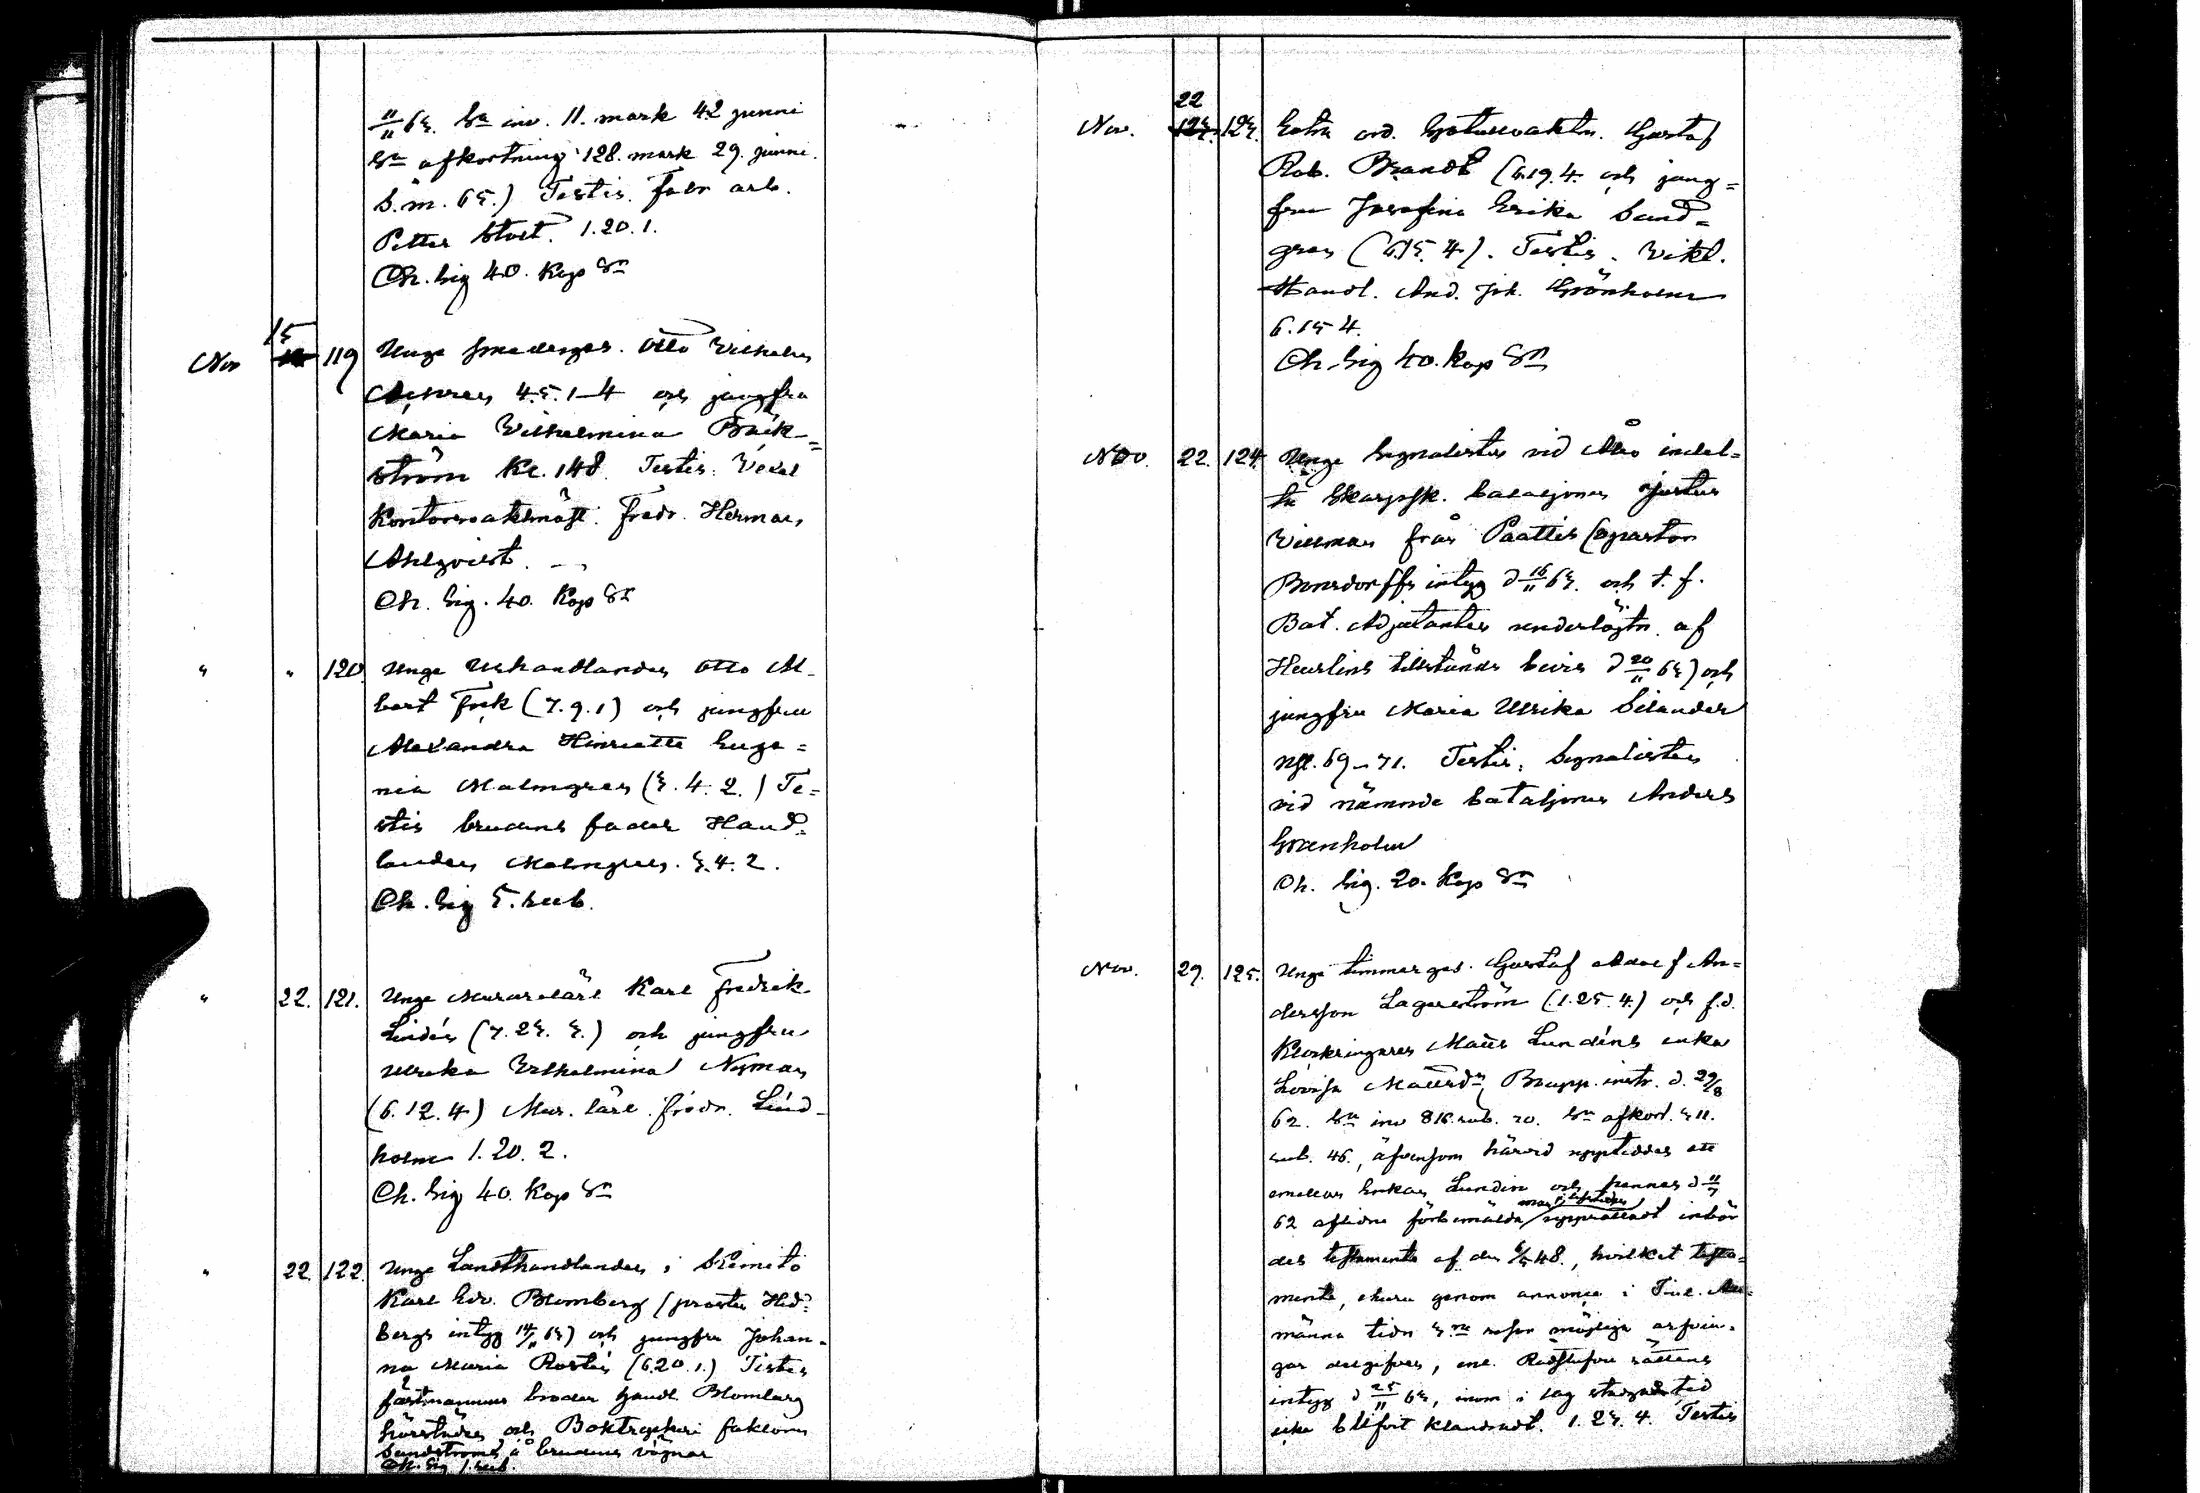 11/11 63. Bn inv. 11. mark 42 penni
Bn afkortning 128. mark 29. penni.
S. m. 65.) Testis. Fabr arb.
Petter 1.20.1.
Ch. Sig 40. Kop Sr
Nov 15 119 Unge smedsges. Otto Wilhelm
4.5.1-4 och jungfru
Maria Wilhelmina Bäck=
ström Kl. 148. Testis: Vexel
Kontorsvaktmäst. Fredr. Herman
Ahlqvist.
Ch. Sig. 40. Kop Sr
" " 120 Unge Urhandlanden Otto Al-
bert Fock (7.9.1) och jungfru
Alexandra Hinriette Euge=
nia Malmgren (3.4.2.) Te=
stis brudens fader Hand=
landen Malmgren. 3.4.2.
Ch. Sig 5. rub.
" 22. 121. Unge Murarelärl Karl Fredrik
Lindén (7.23.3.) och jungfru
Ulrika Wilhelmina Nyman
(6.12.4) Mur. lärl. Fredr. Lind-
holm 1.20.2.
Ch. Sig 40. Kop Sr
" 22. 122. Unge Landthandlanden i Kimito
Karl Edv. Blomberg (prosten Hed=
bergs intyg 14/11 63) och jungfru Johan-
na Maria Rostén (6.20.1.) Testes
fästmannens broder handl. Blomberg
härstädes och Boktryckeri faktorn
Sandström å brudens vägnar
Ch. Sig 1. rub.
Nov. 22 123. Extra ord. Gatuvaktn. Gustaf
Rob. Brandt (6.19.4. och jung=
fru Josefina Erika Sand=
gren (6.15.4). Testis. Vikt.
Handl. And. Joh. Grönholm
6.15 4.
Ch. Sig 40. Kop Sr
Nov. 22. 124. Unge Signalisten vid Åbo indel=
ta Skarpsk. bataljonen Justus
Willman från Paattis (pastor
Bonsdorffs intyg d 16/11 63. och t. f.
Bat. Adjutanten underlöjtn. af
Heurlins tillstånds bevis d 20/11 63) och
jungfru Maria Ulrika Silander
Ngt. 69-71. Testis: Signalisten
vid nämnde bataljonen Anders
Grenholm
Ch. Sig. 20. Kop Sr
Nov. 29. 125. Unge timmerges. Gustaf Adolf An=
dersson Lagerström (1.25.4.) och f.d.
Klockringaren Matts Lundéns enka
Lovisa Mattsdr, Boupp. instr. d. 29/8
62. Bn inv 816. rub. 20. Bn afkort. 311.
rub. 46., äfvensom härvid uppteddes ett
emellan Enkan Lundén och hennes d 11/7
62 aflidne förbemälda man upprättadt inbör
des testamente af den 48., hvilket testa=
mente, ehuru genom annonce i Finl. All=
männa tidn 3ne resor möjliga arfvin=
gar delgifven, enl. Rådstufvu rättens
intyg d 25/11 63, inom i lag stadgad tid
icke blifvit klandradt. 1.23.4. Testis